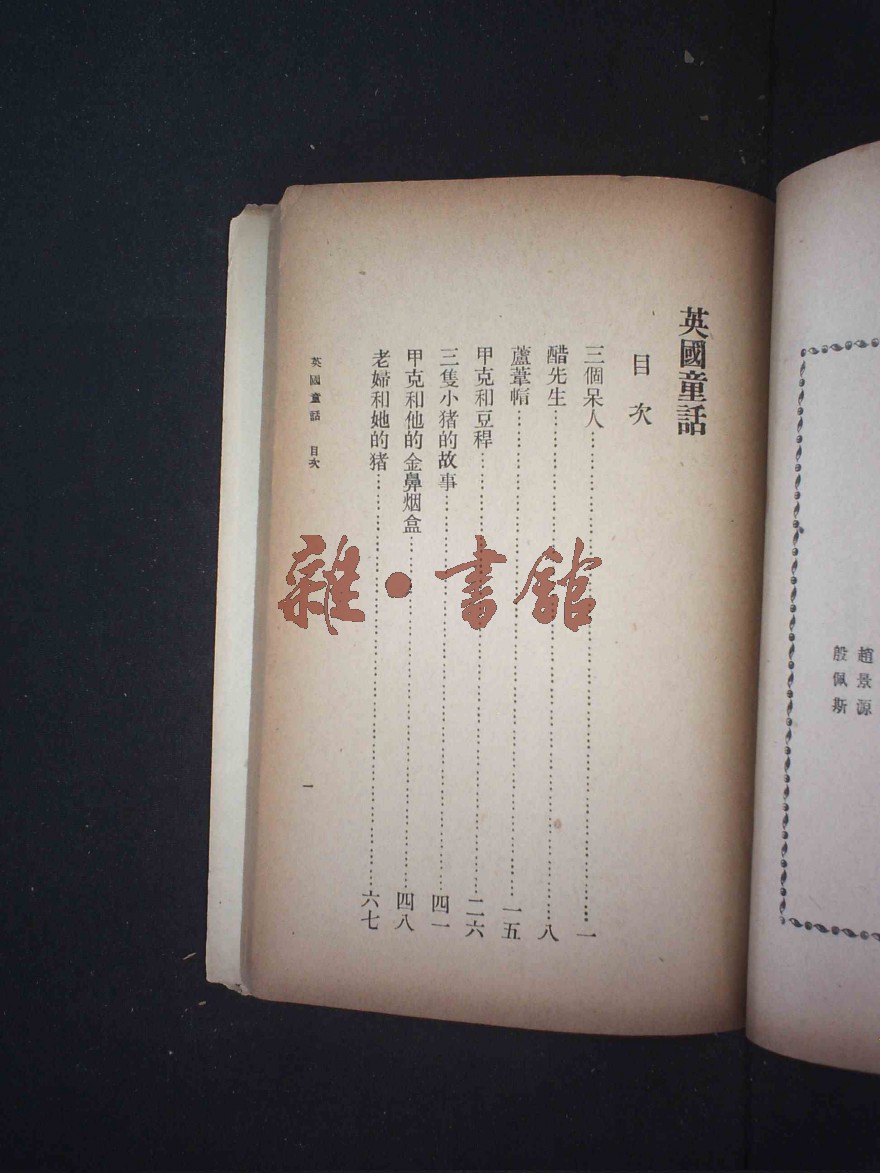 趙景源
殷佩斯
英國童話
目次
三個呆人⋯⋯⋯⋯⋯⋯⋯⋯⋯⋯一
醋先生⋯⋯⋯⋯⋯⋯⋯⋯⋯⋯八
蘆葦帽⋯⋯⋯⋯⋯⋯⋯⋯⋯⋯一五
甲克和豆稈⋯⋯⋯⋯⋯⋯⋯⋯⋯⋯二六
三隻小猪的故事⋯⋯⋯⋯⋯⋯⋯⋯⋯⋯四一
甲克和他的金鼻烟盒⋯⋯⋯⋯⋯⋯⋯⋯⋯⋯四八
老婦和她的猪⋯⋯⋯⋯⋯⋯⋯⋯⋯⋯六七
英國童話 目次
一
雜·書館